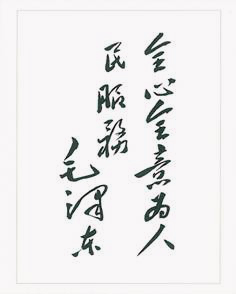 全心全意为人
民服務
毛泽东